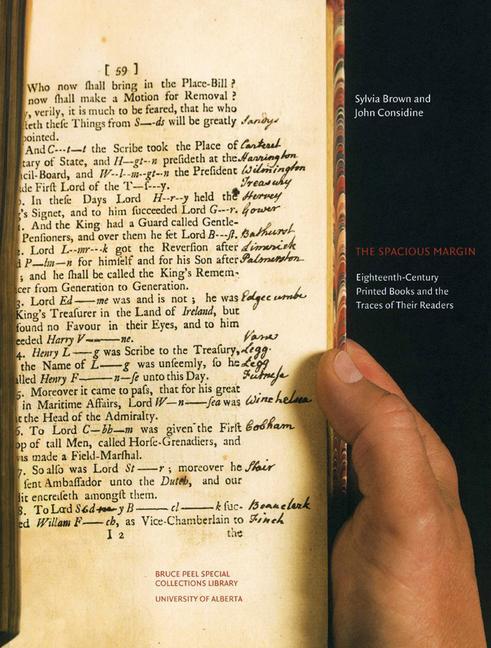 [ 59 ]
Who now ſhall bring in the Place-Bill ?
now ſhall make a Motion for Removal ?
, verily, it is much to be feared, that he who
eth theſe Things from S—ds will be greatly Sandys
ointed.
And C---t—t the Scribe took the Place of Carteret
tary of State, and H—gt--n preſideth at the Harrington
cil-Board, and W--l--m--gt--n the Preſident Wilmington
de Firſt Lord of the T—ſ---y. Treasury
. In theſe Days Lord H--r--y held the Hervey
's Signet, and to him ſucceeded Lord G---r. Gower
. And the King had a Guard called Gentle-
Penſioners, and over them he ſet Lord B---ſt. Bathurst
. Lord L--mr---k got the Reverſion after Limerick
d P—lm—n for himſelf and for his Son after Palmerston
; and he ſhall be called the King's Remem-
cer from Generation to Generation.
3. Lord Ed——me was and is not ; he was Edgecumbe
King's Treaſurer in the Land of Ireland, but
found no Favour in their Eyes, and to him
eeded Harry V———ne. Vane
4. Henry L——g was Scribe to the Treaſury, Legg.
the Name of L——g was unſeemly, ſo he Legg
lled Henry F———n—ſe unto this Day. Furnese
5. Moreover it came to paſs, that for his great
in Maritime Affairs, Lord W—n—lſea was Winchelsea
t the Head of the Admiralty.
6. To Lord C—bb—m was given the Firſt Cobham
op of tall Men, called Horſe-Grenadiers, and
was made a Field-Marſhal.
7. So alſo was Lord St——r ; moreover he Stair
ſent Ambaſſador unto the Dutch, and our
it encreſeth amongſt them.
8. To Lord Sidney B——cl——k ſuc- Beauclerk
ed Willam F——ch, as Vice-Chamberlain to Finch
I 2 the
Sylvia Brown and
John Considine
THE SPACIOUS MARGIN
Eighteenth-Century
Printed Books and the
Traces of Their Readers
BRUCE PEEL SPECIAL
COLLECTIONS LIBRARY
UNIVERSITY OF ALBERTA